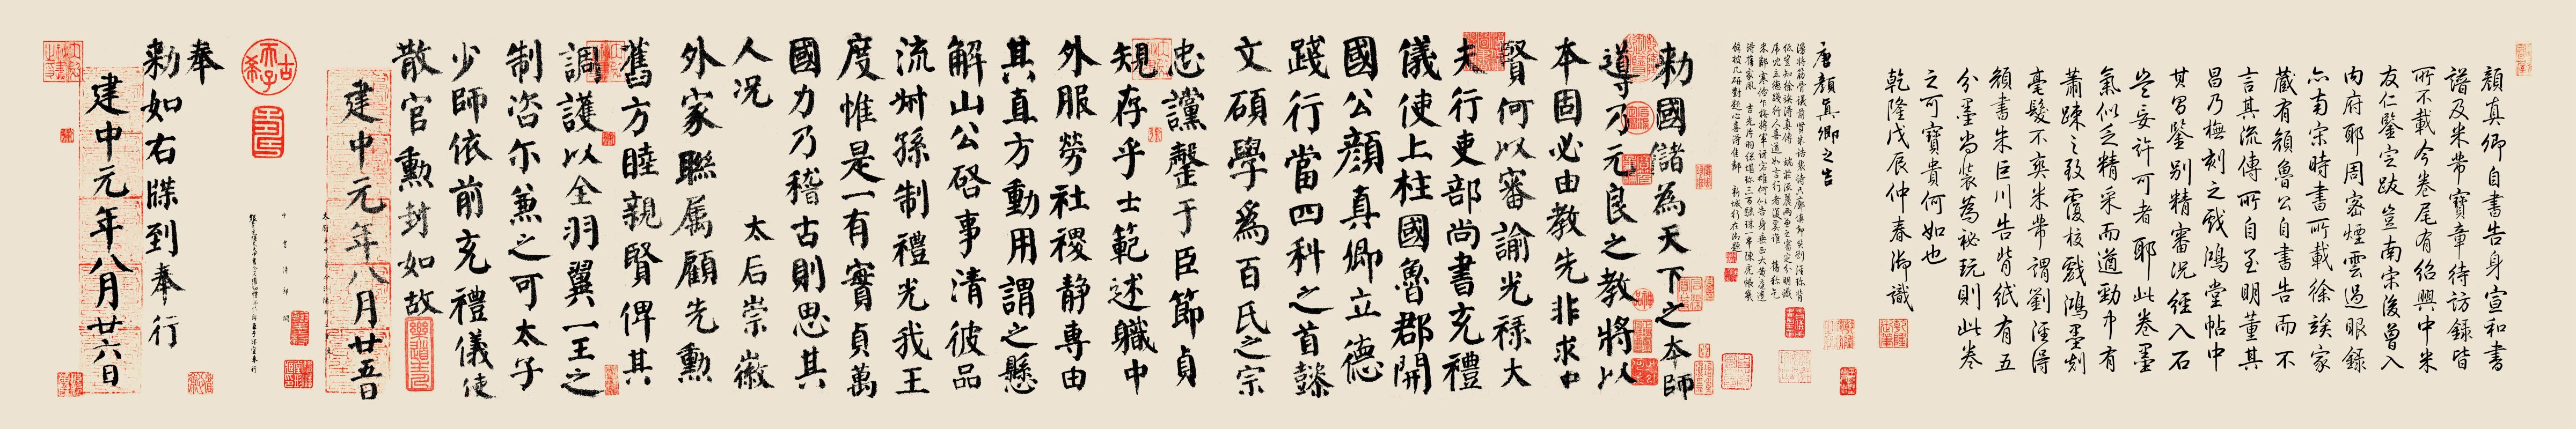 顔真卿自書告身宣和書
譜及米芾寶章待訪錄皆
所不載今卷尾有紹興中米
友仁鑒定跋豈南宋後曾入
内府耶周密煙雲過眼錄
亦南宋時書所載徐琰家
藏有顔魯公自書告而不
言其流傳所自至明董其
昌乃橅刻之戲鴻堂帖中
其昌鑒别精審況經入石
豈妄許可者耶此卷墨
氣似乏精采而遒勁中有
蕭疎之致覆校戲鴻墨刻
毫髮不爽米芾謂劉涇得
顔書朱巨川告背紙有五
分墨尚裝為秘玩則此卷
之可寶貴何如也
乾隆戊辰仲春御識
唐顏真卿之告
勑國儲為天下之本師
導乃元良之教將以
本固必由教先非求中
賢何以審諭光祿大
夫行吏部尚書充禮
儀使上柱國魯郡開
國公顏真卿立德
踐行當四科之首懿
文碩學為百氏之宗
忠讜罄于臣節貞
規存乎士範述職中
外服勞社稷静專由
其直方動用謂之懸
解山公啓事清彼品
流叔孫制禮光我王
度惟是一有實貞萬
國力乃稽古則思其
人況 太后崇徽
外家聯属顧先勲
舊方睦親賢俾其
調護以全羽翼一王之
制咨尔兼之可太子
少師依前充禮儀使
散官勲封如故
建中元年八月廿五日
古希天子
奉
勑如右牒到奉行
建中元年八月廿六日